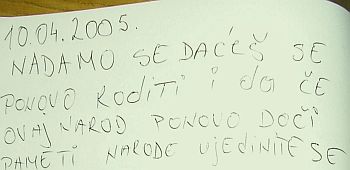 10.04.2005.
NADAMO SE DAĆEŠ SE
PONOVO RODITI i da ČE
OVAJ NAROD PONOVO DOČI
PAMETI NARODE UJEDINITE SE